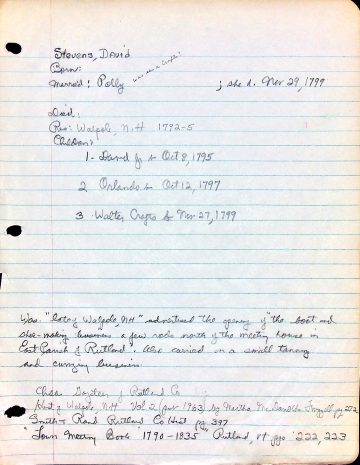 Stevens, David
Born:
Married: Polly ; she d. Nov 29, 1799
Died:
Res: Walpole, N.H 1792-5
Children:
1- David Jr b Oct 9, 1795
2 Orlando b Oct 12, 1797
3 Walter b Nov 27, 1799
Was "late of Walpole, NH" advertised the opening of "the boot and
shoe-making business a few rods north of the meeting house in
East Parish of Rutland. Also carried on a small tanning
and currying business.
Child Gazetteer of Rutland Co
Hist of Walpole, N.H Vol 2 (pub 1963) by Martha McDanolds Frizzell pg 272
Smith & Rand Rutland Co Hist pg 397
"Town Meeting Book 1790-1835" Rutland, Vt pgs 222, 223